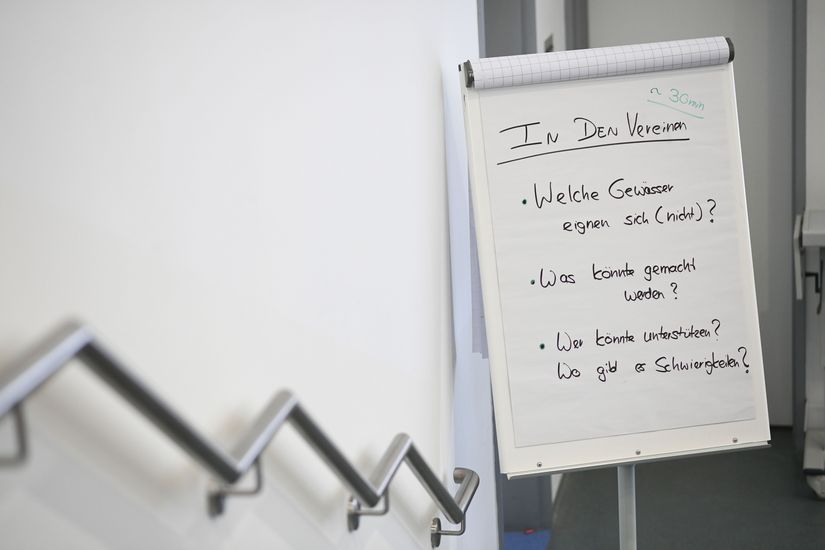 ~ 30min
In Den Vereinen
• Welche Gewässer
eignen sich (nicht)?
• Was könnte gemacht
werden?
• Wer könnte unterstützen?
Wo gibt es Schwierigkeiten?